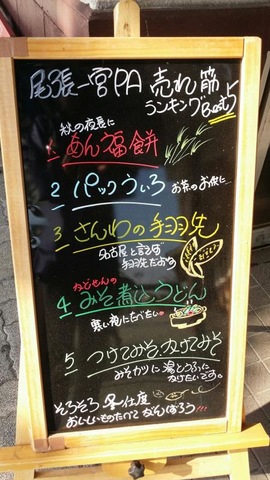 尾張一宮PA 売れ筋
ランキングBest5
秋の夜長に
1 あん福餅
2 パックういろ お茶のお供に…
3 さんわの手羽先
名古屋と言えば
手羽先だがや
4 みそ煮込うどん
寒い夜にたべたい
5 つけてみそ、かけてみそ
みそカツに 湯どうふに
なりたいです。
そろそろ 冬仕度
おいしいものたべて がんばろう!!!